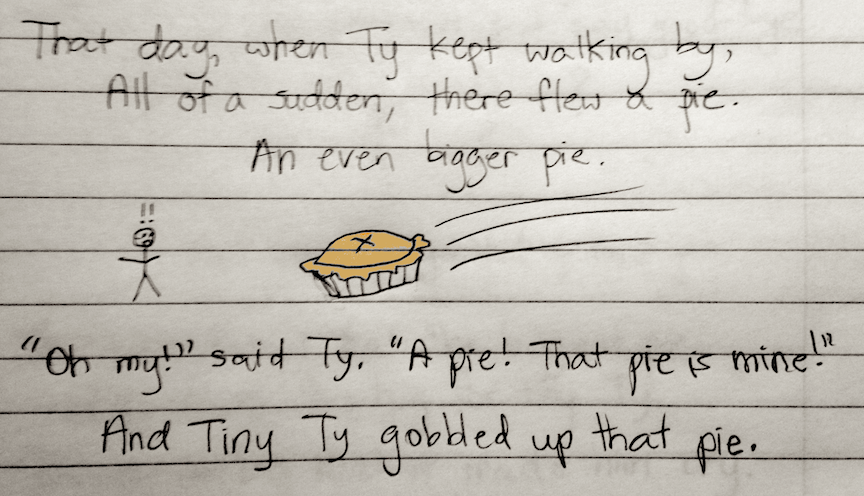 That day, when Ty kept walking by,
All of a sudden, there flew a pie.
An even bigger pie.
!!
"Oh my!" said Ty. "A pie! That pie is mine!"
And Tiny Ty gobbled up that pie.